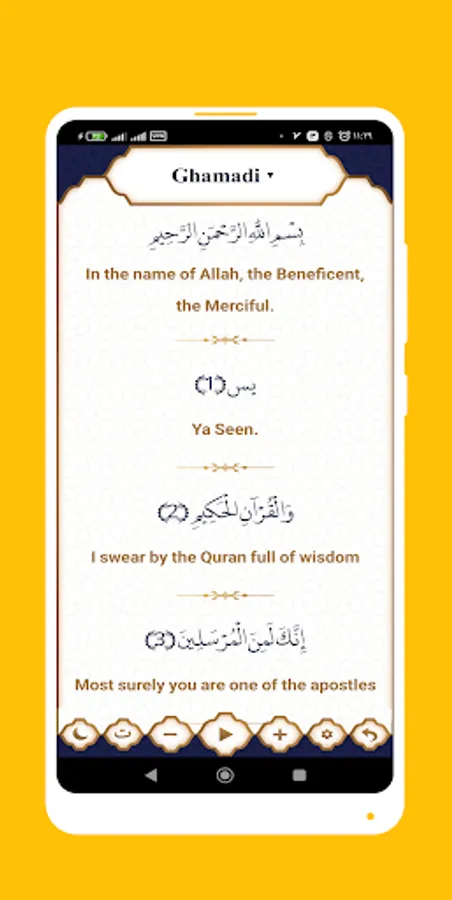 VPN
۱۱:۲۹
Ghamadi ▾
بِسْمِ اللَّهِ الرَّحْمَنِ الرَّحِيمِ
In the name of Allah, the Beneficent,
the Merciful.
يس (1)
Ya Seen.
وَالْقُرْآنِ الْحَكِيمِ (2)
I swear by the Quran full of wisdom
إِنَّكَ لَمِنَ الْمُرْسَلِينَ (3)
Most surely you are one of the apostles
ت